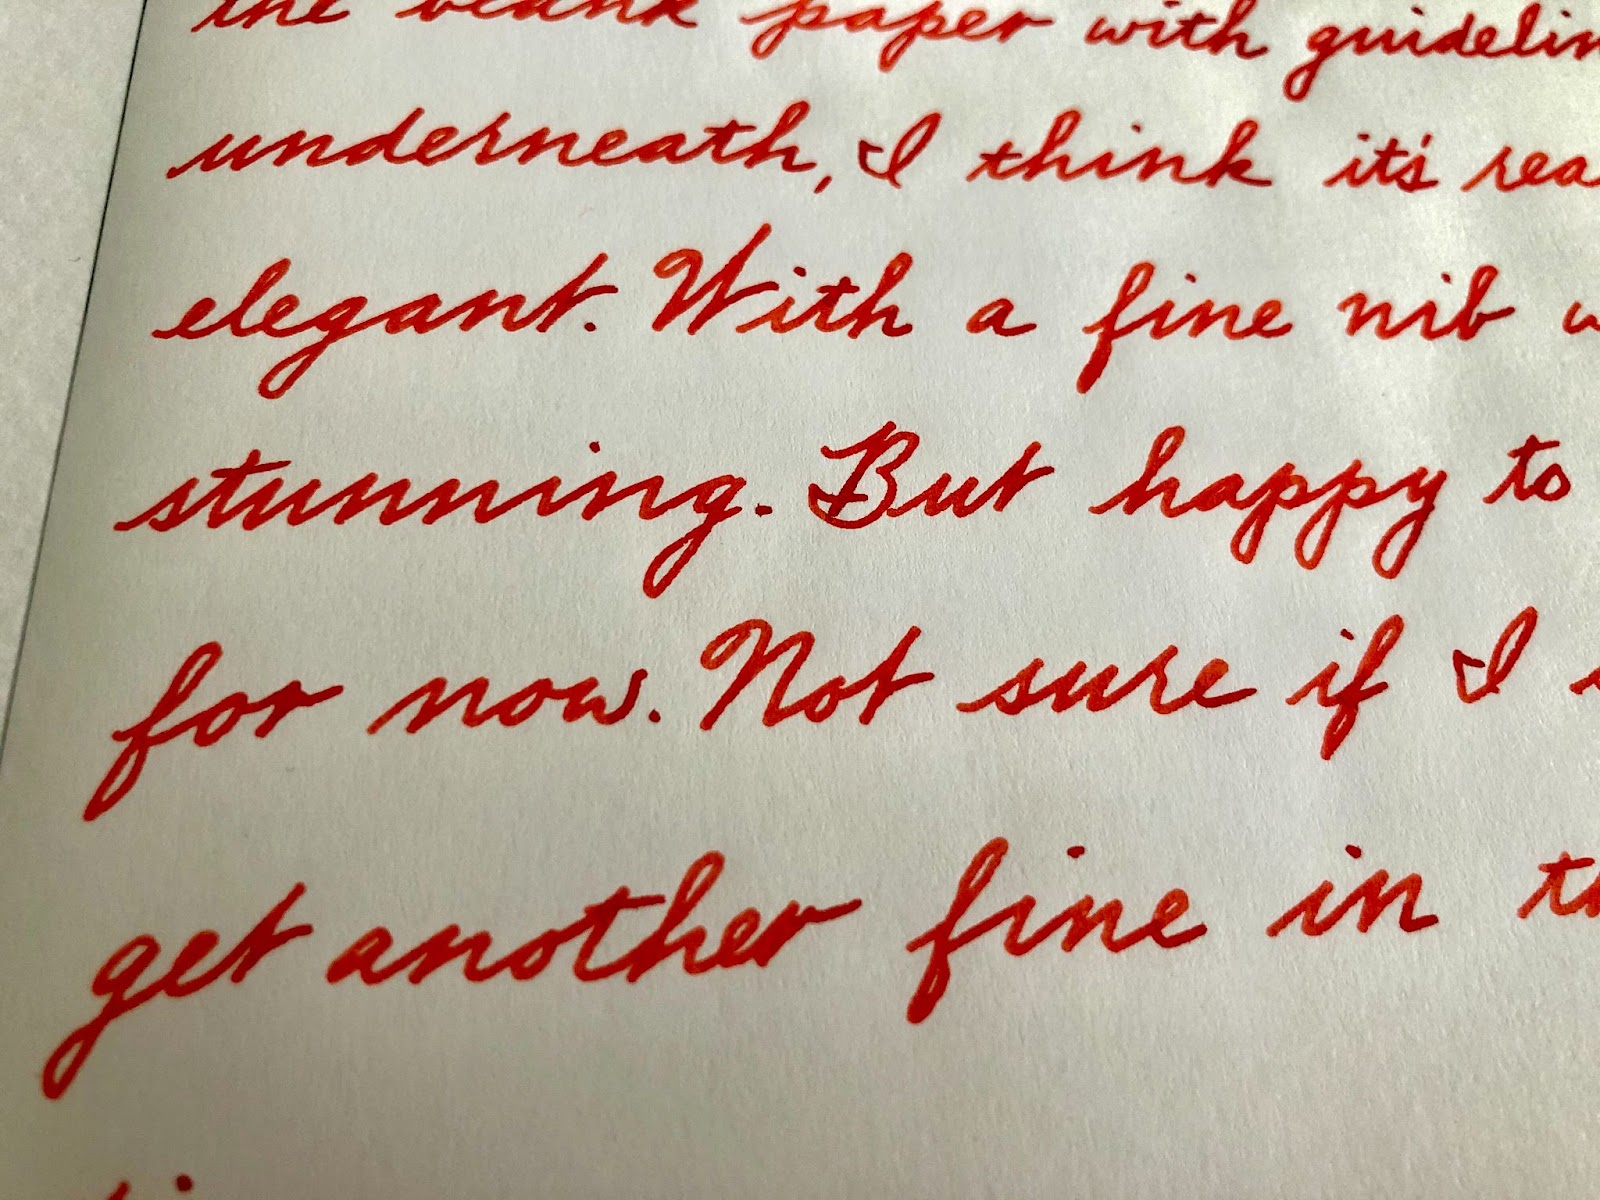 the blank paper with guidelin
underneath, I think it's rea
elegant. With a fine nib w
stunning. But happy to
for now. Not sure if I
get another fine in